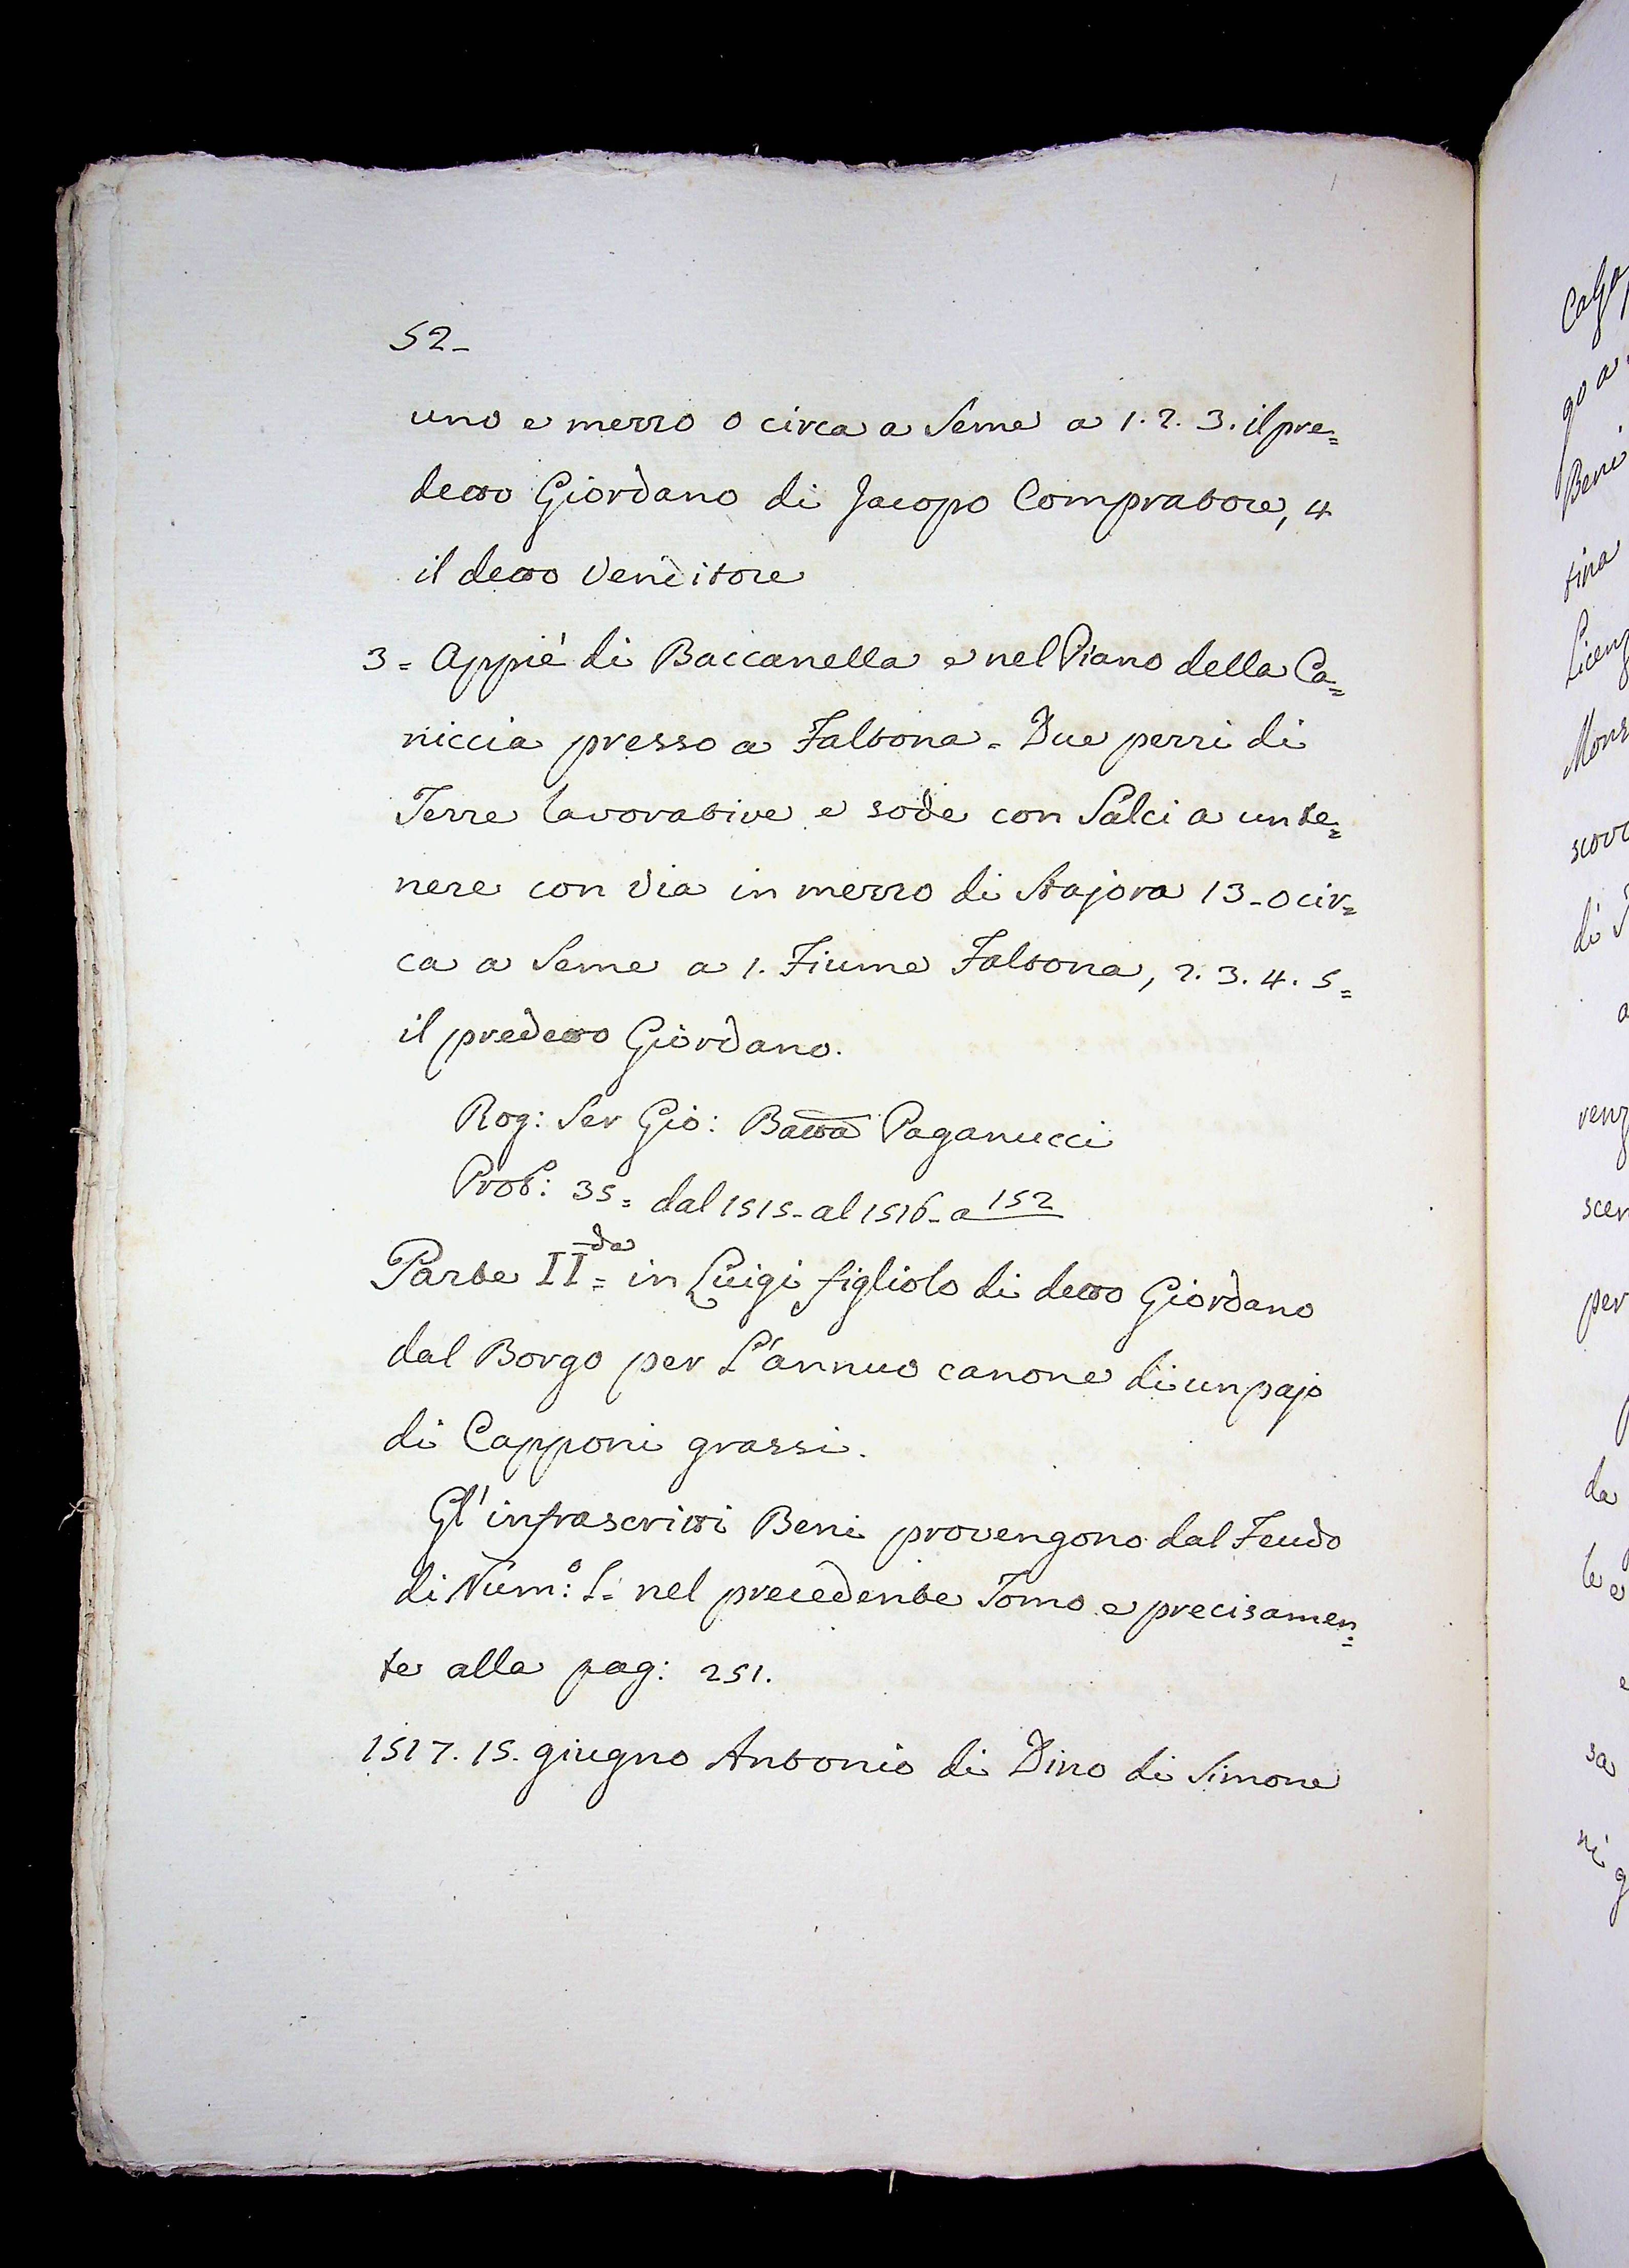 52-
uno e mezzo o circa a Seme a 1. 2. 3. il pre=
detto Giordano di Jacopo Compratore, 4
il detto Venditore
3= Appiè di Baccanella e nel Piano della Ca=
niccia presso a Faltona. Due pezzi di
Terre lavorative e sode con Salci a un te=
nere con Via in mezzo di Stajora 13- o cir=
ca a Seme a 1. Fiume Faltona, 2. 3. 4. 5=
il predetto Giordano.
Rog: Ser Gio: Batta Paganucci
Prot.o: 35= dal 1515- al 1516- a 152
Parte II=da in Luigi figliolo di detto Giordano
dal Borgo per L'annuo canone di un pajo
di Capponi grassi.
Gl'infrascritti Beni provengono dal Feudo
di Num.o: L= nel precedente Tomo e precisamen=
te alla pag: 251.
1517. 15. giugno Antonio di Dino di Simone